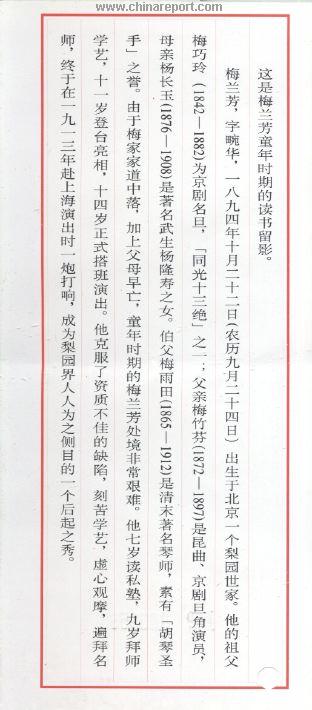 www.chinareport.com
这是梅兰芳童年时期的读书留影。
梅兰芳，字畹华，一八九四年十月二十二日(农历九月二十四日）出生于北京一个梨园世家。他的祖父
梅巧玲（1842—1882)为京剧名旦，「同光十三绝」之一；父亲梅竹芬(1872—1897)是昆曲、京剧旦角演员，
母亲杨长玉(1876—1908)是著名武生杨隆寿之女。伯父梅雨田(1865—1912)是清末著名琴师，素有「胡琴圣
手」之誉。由于梅家家道中落，加上父母早亡，童年时期的梅兰芳处境非常艰难。他七岁读私塾，九岁拜师
学艺，十一岁登台亮相，十四岁正式搭班演出。他克服了资质不佳的缺陷，刻苦学艺，虚心观摩，遍拜名
师，终于在一九一三年赴上海演出时一炮打响，成为梨园界人人为之侧目的一个后起之秀。